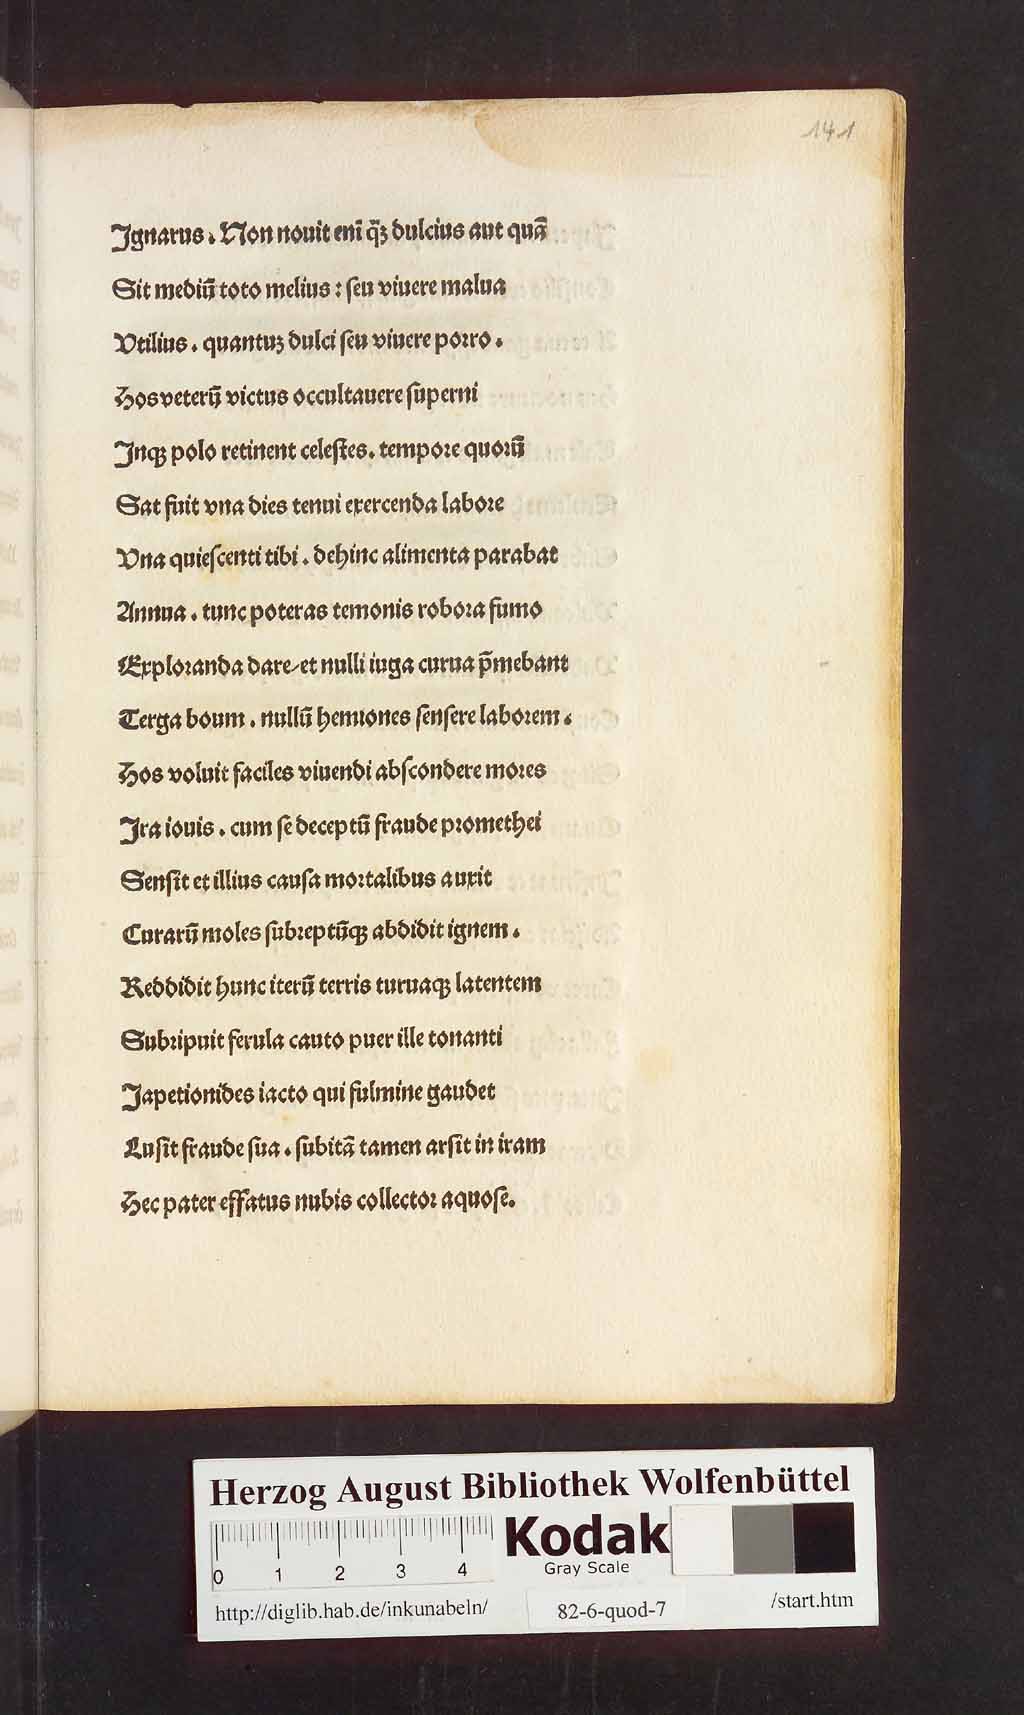 141
Ignarus. Non nouit enī q̄ꝫ dulcius aut quā
Sit mediū toto melius : seu viuere malua
Vtilius. quantuꝫ dulci seu viuere porro.
Hos veterū victus occultauere superni
Inqꝫ polo retinent celestes. tempore quorū
Sat fuit vna dies tenui exercenda labore
Vna quiescenti tibi. dehinc alimenta parabat
Annua. tunc poteras temonis robora fumo
Exploranda dare/et nulli iuga curua p̄mebant
Terga boum. nullū hemiones sensere laborem.
Hos voluit faciles viuendi abscondere mores
Ira iouis. cum se deceptū fraude promethei
Sensit et illius causa mortalibus auxit
Curarū moles subreptūqꝫ abdidit ignem.
Reddidit hunc iterū terris turuaqꝫ latentem
Subripuit ferula cauto puer ille tonanti
Iapetionides iacto qui fulmine gaudet
Lusit fraude sua. subitā tamen arsit in iram
Hec pater effatus nubis collector aquose.
Herzog August Bibliothek Wolfenbüttel
0 1 2 3 4
Kodak
Gray Scale
http://diglib.hab.de/inkunabeln/ 82-6-quod-7 /start.htm